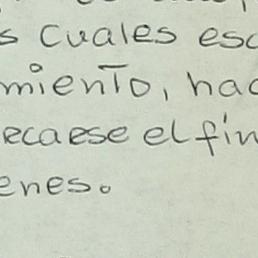 s cuales esc
miento, hac
ecaese el fin
enes.